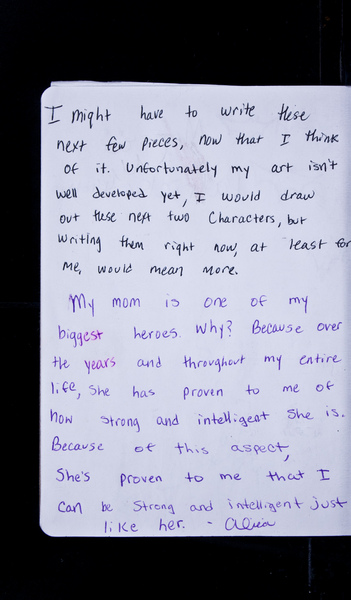 I might have to write these
next few pieces, now that I think
of it. Unfortunately my art isn't
well developed yet, I would draw
out these next two characters, but
writing them right now, at least for
me, would mean more.
My mom is one of my
biggest heroes. Why? Because over
the years and throughout my entire
life, she has proven to me of
how strong and intelligent she is.
Because of this aspect,
She's proven to me that I
can be strong and intelligent just
like her. - Alicia